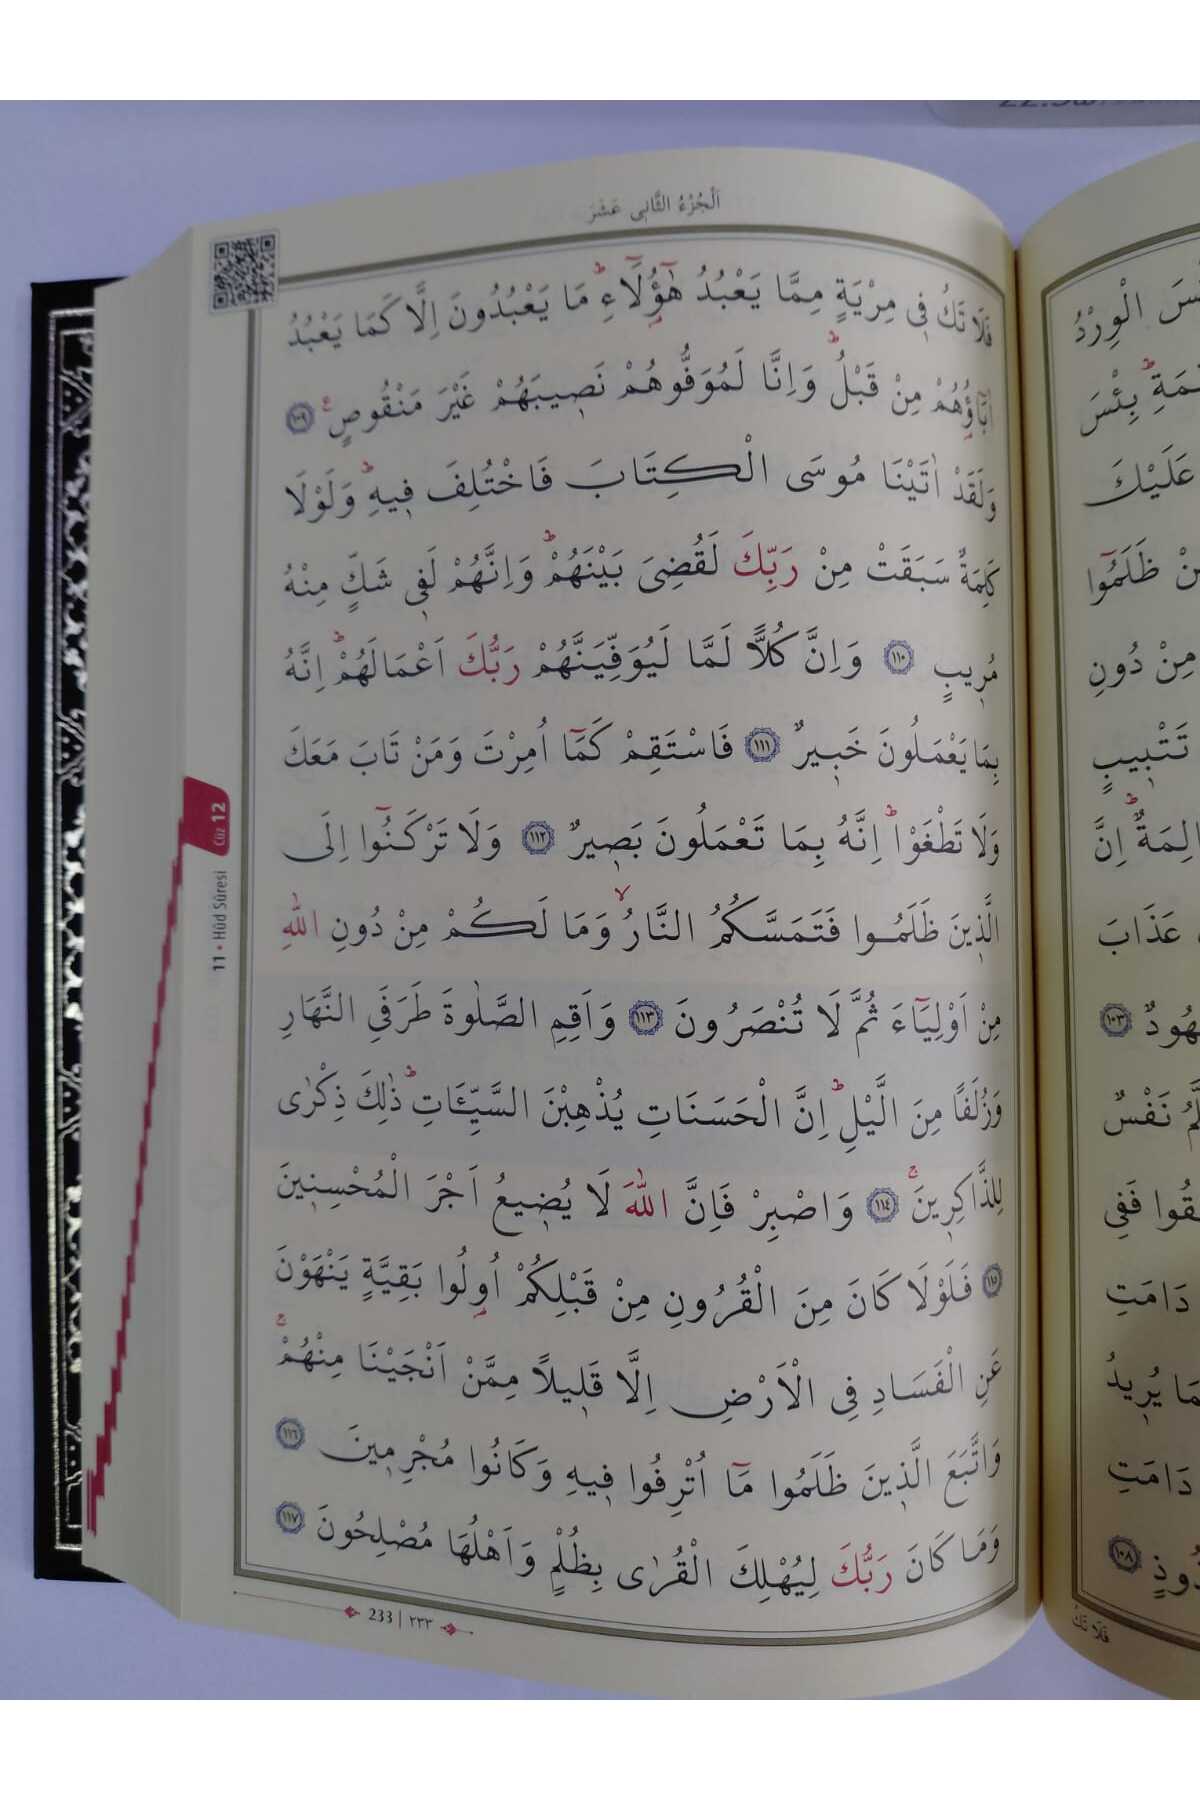 اَلْجُزْءُ الثَّانِى عَشَرَ
فَلَا تَكُ فِى مِرْيَةٍ مِمَّا يَعْبُدُ هٰٓؤُ۬لَٓاءِۜ مَا يَعْبُدُونَ اِلَّا كَمَا يَعْبُدُ
اٰبَٓاؤُ۬هُمْ مِنْ قَبْلُۜ وَاِنَّا لَمُوَفُّوهُمْ نَصٖيبَهُمْ غَيْرَ مَنْقُوصٍ ﴿١٠٩﴾
وَلَقَدْ اٰتَيْنَا مُوسَى الْكِتَابَ فَاخْتُلِفَ فٖيهِۜ وَلَوْلَا
كَلِمَةٌ سَبَقَتْ مِنْ رَبِّكَ لَقُضِىَ بَيْنَهُمْۜ وَاِنَّهُمْ لَفٖى شَكٍّ مِنْهُ
مُرٖيبٍ ﴿١١٠﴾ وَاِنَّ كُلًّا لَمَّا لَيُوَفِّيَنَّهُمْ رَبُّكَ اَعْمَالَهُمْۜ اِنَّهُ
بِمَا يَعْمَلُونَ خَبٖيرٌ ﴿١١١﴾ فَاسْتَقِمْ كَمَٓا اُمِرْتَ وَمَنْ تَابَ مَعَكَ
وَلَا تَطْغَوْاۜ اِنَّهُ بِمَا تَعْمَلُونَ بَصٖيرٌ ﴿١١٢﴾ وَلَا تَرْكَنُٓوا اِلَى
الَّذٖينَ ظَلَمُوا فَتَمَسَّكُمُ النَّارُۙ وَمَا لَكُمْ مِنْ دُونِ اللّٰهِ
مِنْ اَوْلِيَٓاءَ ثُمَّ لَا تُنْصَرُونَ ﴿١١٣﴾ وَاَقِمِ الصَّلٰوةَ طَرَفَىِ النَّهَارِ
وَزُلَفًا مِنَ الَّيْلِۜ اِنَّ الْحَسَنَاتِ يُذْهِبْنَ السَّيِّـَٔاتِۜ ذٰلِكَ ذِكْرٰى
لِلذَّاكِرٖينَۚ ﴿١١٤﴾ وَاصْبِرْ فَاِنَّ اللّٰهَ لَا يُضٖيعُ اَجْرَ الْمُحْسِنٖينَ
﴿١١٥﴾ فَلَوْلَا كَانَ مِنَ الْقُرُونِ مِنْ قَبْلِكُمْ اُو۬لُوا بَقِيَّةٍ يَنْهَوْنَ
عَنِ الْفَسَادِ فِى الْاَرْضِ اِلَّا قَلٖيلًا مِمَّنْ اَنْجَيْنَا مِنْهُمْۚ
وَاتَّبَعَ الَّذٖينَ ظَلَمُوا مَٓا اُتْرِفُوا فٖيهِ وَكَانُوا مُجْرِمٖينَ ﴿١١٦﴾
وَمَا كَانَ رَبُّكَ لِيُهْلِكَ الْقُرٰى بِظُلْمٍ وَاَهْلُهَا مُصْلِحُونَ ﴿١١٧﴾
233 | ٢٣٣
Cüz 12
11 • Hûd Sûresi
ئْسَ الْوِرْدُ
بِئْسَ
عَلَيْكَ
ظَلَمُٓوا
مِنْ دُونِ
تَتْبٖيبٍ
اِنَّ
عَذَابَ
١٠٣
نَفْسٌ
فَفِى
دَامَتِ
يُرٖيدُ
دَامَتِ
١٠٨
فَلَا تَكُ